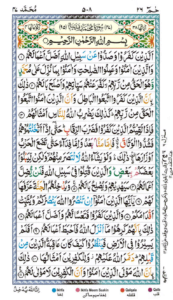 حٰمٓ ٢٦
٥٠٨
مُحَمَّد ٤٧
بِسْمِ اللهِ الرَّحْمٰنِ الرَّحِيْمِ
اَلَّذِيْنَ كَفَرُوْا وَصَدُّوْا عَنْ سَبِيْلِ اللهِ اَضَلَّ اَعْمَالَهُمْ
وَالَّذِيْنَ اٰمَنُوْا وَعَمِلُوا الصّٰلِحٰتِ وَاٰمَنُوْا بِمَا نُزِّلَ عَلٰى مُحَمَّدٍ
وَّهُوَ الْحَقُّ مِنْ رَّبِّهِمْ كَفَّرَ عَنْهُمْ سَيِّاٰتِهِمْ وَاَصْلَحَ بَالَهُمْ ذٰلِكَ
بِاَنَّ الَّذِيْنَ كَفَرُوا اتَّبَعُوا الْبَاطِلَ وَاَنَّ الَّذِيْنَ اٰمَنُوا اتَّبَعُوا
الْحَقَّ مِنْ رَّبِّهِمْ كَذٰلِكَ يَضْرِبُ اللهُ لِلنَّاسِ اَمْثَالَهُمْ فَاِذَا
لَقِيْتُمُ الَّذِيْنَ كَفَرُوْا فَضَرْبَ الرِّقَابِ حَتّٰى اِذَا اَثْخَنْتُمُوْهُمْ
فَشُدُّوا الْوَثَاقَ فَاِمَّا مَنًّا بَعْدُ وَاِمَّا فِدَاءً حَتّٰى تَضَعَ الْحَرْبُ
اَوْزَارَهَا ذٰلِكَ وَلَوْ يَشَاءُ اللهُ لَانْتَصَرَ مِنْهُمْ وَلٰكِنْ لِّيَبْلُوَا
بَعْضَكُمْ بِبَعْضٍ وَالَّذِيْنَ قُتِلُوْا فِيْ سَبِيْلِ اللهِ فَلَنْ يُّضِلَّ
اَعْمَالَهُمْ سَيَهْدِيْهِمْ وَيُصْلِحُ بَالَهُمْ وَيُدْخِلُهُمُ الْجَنَّةَ عَرَّفَهَا
لَهُمْ يٰاَيُّهَا الَّذِيْنَ اٰمَنُوْا اِنْ تَنْصُرُوا اللهَ يَنْصُرْكُمْ وَيُثَبِّتْ
اَقْدَامَكُمْ وَالَّذِيْنَ كَفَرُوْا فَتَعْسًا لَّهُمْ وَاَضَلَّ اَعْمَالَهُمْ
ذٰلِكَ بِاَنَّهُمْ كَرِهُوْا مَا اَنْزَلَ اللهُ فَاَحْبَطَ اَعْمَالَهُمْ اَفَلَمْ
يَسِيْرُوْا فِي الْاَرْضِ فَيَنْظُرُوْا كَيْفَ كَانَ عَاقِبَةُ الَّذِيْنَ مِنْ
قَبْلِهِمْ دَمَّرَ اللهُ عَلَيْهِمْ وَلِلْكٰفِرِيْنَ اَمْثَالُهَا ذٰلِكَ
بِاَنَّ اللهَ مَوْلَى الَّذِيْنَ اٰمَنُوْا وَاَنَّ الْكٰفِرِيْنَ لَا مَوْلٰى لَهُمْ
Ikhfa Ikhfa Meem Saakin Qalqala